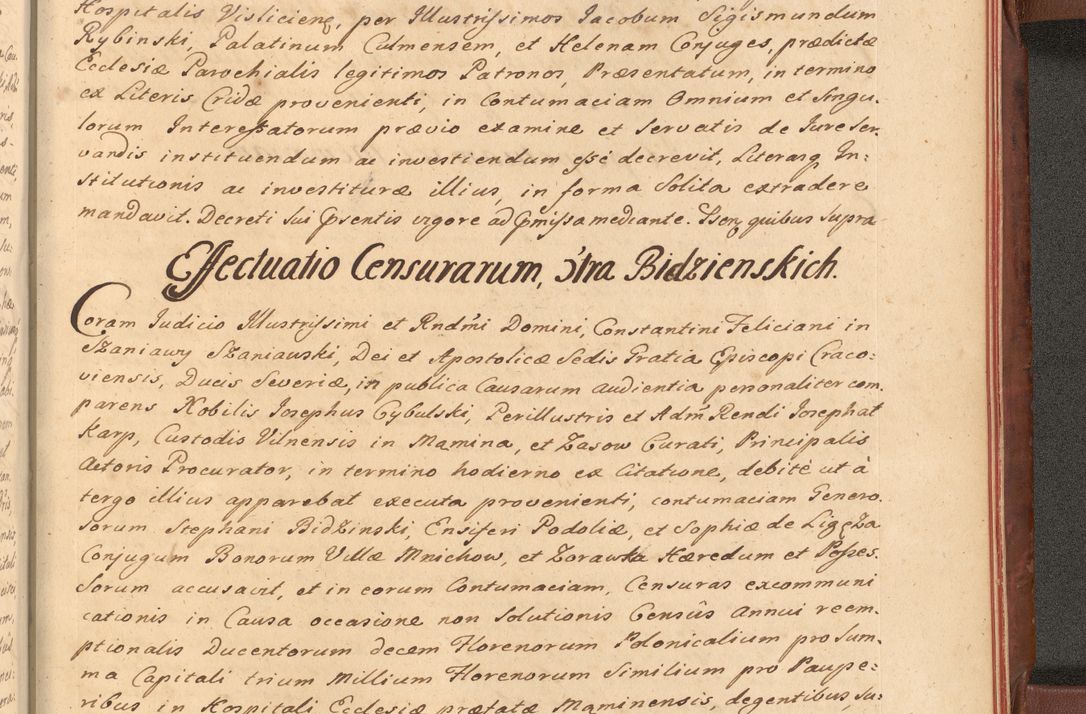 Hospitalis Visliciens, per Illustrissimos Jacobum Sigismundum
Rybinski, Palatinum Culmensem, et Helenam Conjuges, prædictæ
Ecclesiæ Parochialis legitimos Patronos, Præsentatum, in termino
ex Literis Cridæ provenienti, in Contumaciam Omnium et Singu-
lorum Interessatorum prævio examine et Servatis de Jure Ser-
vandis instituendum ac investiendum esse decrevit, Literasq In-
stitutionis ac investituræ illius, in forma Solita extradere
mandavit. Decreti Sui Psentis vigore ad Pmissa mediante. quibus Supra
Effectuatio Censurarum, ɔ̃tra Bidzienskich.
Coram Judicio Illustrissimi et Rndmi Domini, Constantini Feliciani in
Szaniawy Szaniawski, Dei et Apostolicæ Sedis Gratia Episcopi Craco-
viensis, Ducis Severiæ, in publica Causarum audientia personaliter com-
parens Nobilis Josephus Cybulski, Perillustris et Adm Rendi Josephat
Karp, Custodis Vilnensis in Mamina, et Zasow Curati, Principalis
Actoris Procurator, in termino hodierno ex Citatione, debitè ut à
tergo illius apparebat executa provenienti, contumaciam Genero-
sorum Stephani Bidzinski, Ensiferi Podoliæ, et Sophiæ de Ligęza
Conjugum Bonorum Villæ Mnichow, et Zorawka Hæredum et Posses-
sorum accusavit, et in eorum Contumaciam, Censuras excommuni
cationis in Causa occasione non Solutionis Censûs annui reem-
ptionalis Ducentorum decem Florenorum Polonicalium pro Sum-
ma Capitali trium Millium Florenorum Similium pro Paupe-
ribus in Hospitali Ecclesiæ præfatæ Maminensis, degentibus, Su-